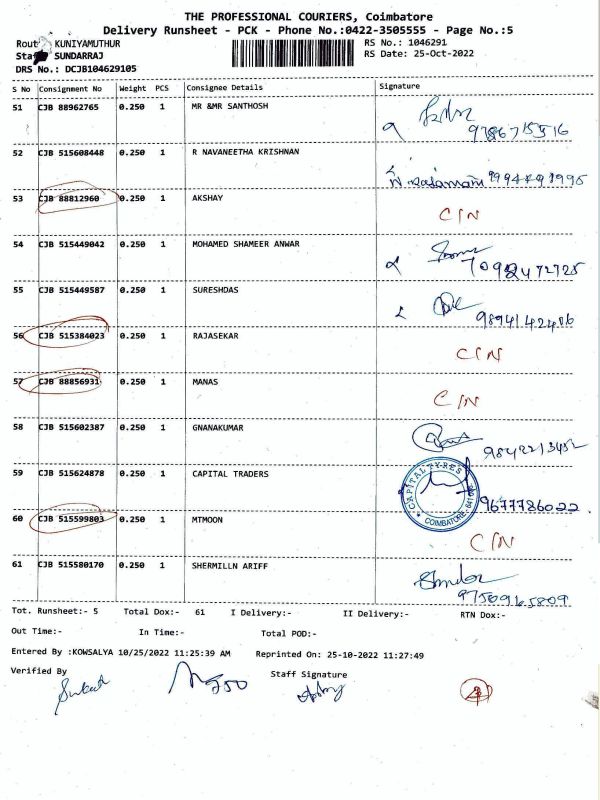 THE PROFESSIONAL COURIERS, Coimbatore
Delivery Runsheet - PCK - Phone No.:0422-3505555 - Page No.:5
Rout KUNIYAMUTHUR RS No.: 1046291
Sta SUNDARRAJ RS Date: 25-Oct-2022
DRS No.: DCJB104629105
S No Consignment No Weight PCS Consignee Details Signature
51 CJB 88962765 0.250 1 MR &MR SANTHOSH
52 CJB 515608448 0.250 1 R NAVANEETHA KRISHNAN
53 CJB 88812960 0.250 1 AKSHAY C/N
54 CJB 515449042 0.250 1 MOHAMED SHAMEER ANWAR
55 CJB 515449587 0.250 1 SURESHDAS 9894142486
56 CJB 515384023 0.250 1 RAJASEKAR C/N
57 CJB 88856931 0.250 1 MANAS C/N
58 CJB 515602387 0.250 1 GNANAKUMAR
59 CJB 515624878 0.250 1 CAPITAL TRADERS CAPITAL TYRES COIMBATORE 9677786022
60 CJB 515599803 0.250 1 MTMOON C/N
61 CJB 515580170 0.250 1 SHERMILLN ARIFF
Tot. Runsheet:- 5 Total Dox:- 61 I Delivery:- II Delivery:- RTN Dox:-
Out Time:- In Time:- Total POD:-
Entered By :KOWSALYA 10/25/2022 11:25:39 AM Reprinted On: 25-10-2022 11:27:49
Verified By Staff Signature